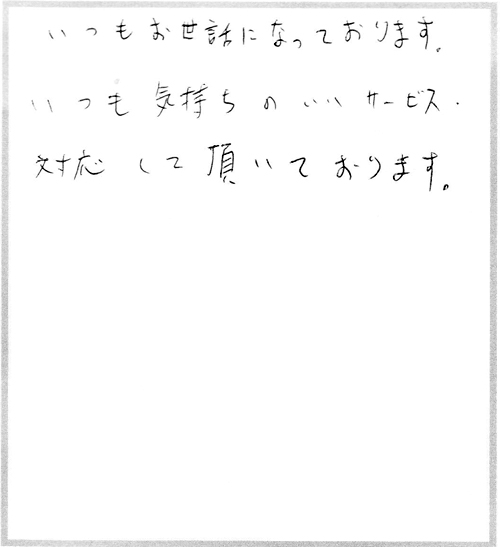 いつもお世話になっております。
いつも気持ちのいいサービス・
対応して頂いております。